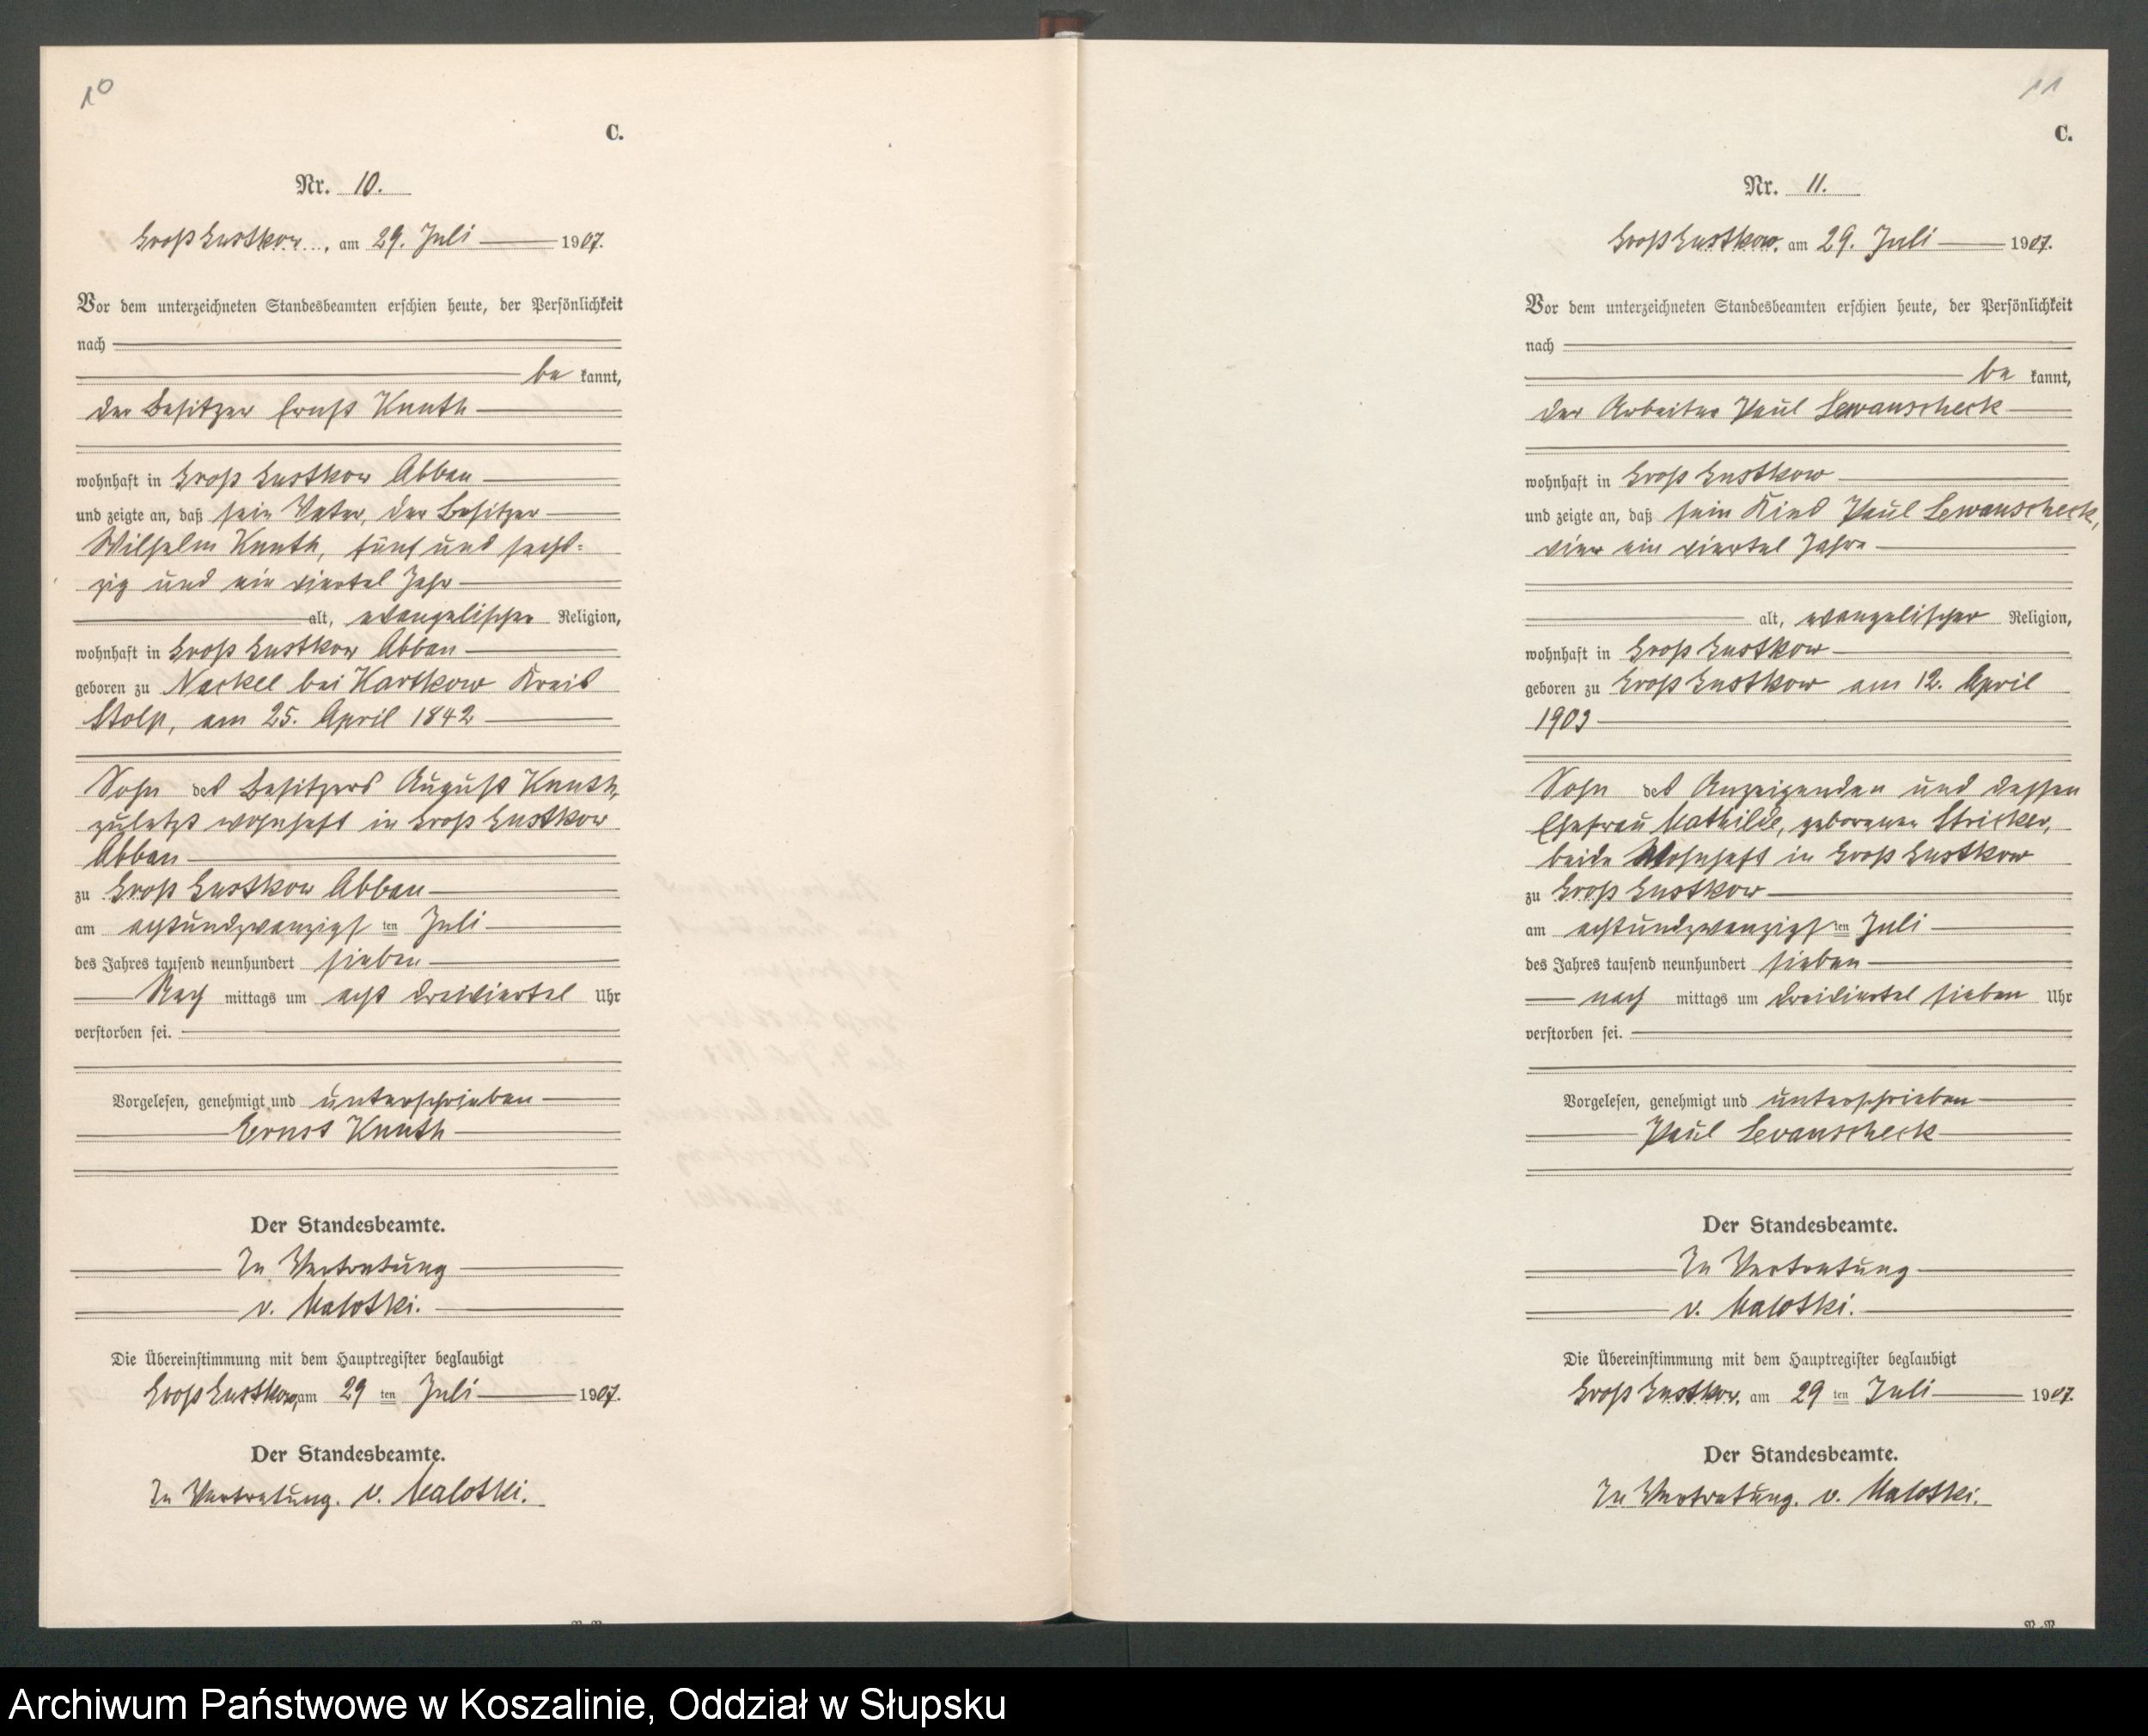 10
C.
Nr. 10.
Groß Gustkow, am 29. Juli 1907.
Vor dem unterzeichneten Standesbeamten erschien heute, der Persönlichkeit
nach
be kannt,
der Besitzer Ernst Knuth
wohnhaft in Groß Gustkow Abbau
und zeigte an, daß sein Vater, der Besitzer
Wilhelm Knuth, fünf und sech-
zig und ein viertel Jahr
alt, evangelischer Religion,
wohnhaft in Groß Gustkow Abbau
geboren zu Neckel bei Kartkow Kreis
Stolp, am 25. April 1842
Sohn des Besitzers August Knuth,
zuletzt wohnhaft in Groß Gustkow
Abbau
zu Groß Gustkow Abbau
am achtundzwanzigsten Juli
des Jahres tausend neunhundert sieben
Nach mittags um acht dreiviertel Uhr
verstorben sei.
Vorgelesen, genehmigt und unterschrieben
Ernst Knuth
Der Standesbeamte.
In Vertretung
v. Malotki.
Die Übereinstimmung mit dem Hauptregister beglaubigt
Groß Gustkow, am 29 ten Juli 1907.
Der Standesbeamte.
In Vertretung. v. Malotki.
11
C.
Nr. 11.
Groß Gustkow, am 29. Juli 1907.
Vor dem unterzeichneten Standesbeamten erschien heute, der Persönlichkeit
nach
be kannt,
der Arbeiter Paul Lewanscheck
wohnhaft in Groß Gustkow
und zeigte an, daß sein Kind Paul Lewanscheck,
vier ein viertel Jahre
alt, evangelischer Religion,
wohnhaft in Groß Gustkow
geboren zu Groß Gustkow am 12. April
1903
Sohn des Anzeigenden und dessen
Ehefrau Mathilde, geborenen Stricker,
beide Wohnhaft in Groß Gustkow
zu Groß Gustkow
am achtundzwanzigsten Juli
des Jahres tausend neunhundert sieben
nach mittags um dreiviertel sieben Uhr
verstorben sei.
Vorgelesen, genehmigt und unterschrieben
Paul Levanscheck
Der Standesbeamte.
In Vertretung
v. Malotki.
Die Übereinstimmung mit dem Hauptregister beglaubigt
Groß Gustkow, am 29 ten Juli 1907.
Der Standesbeamte.
In Vertretung. v. Malotki.
Archiwum Państwowe w Koszalinie, Oddział w Słupsku